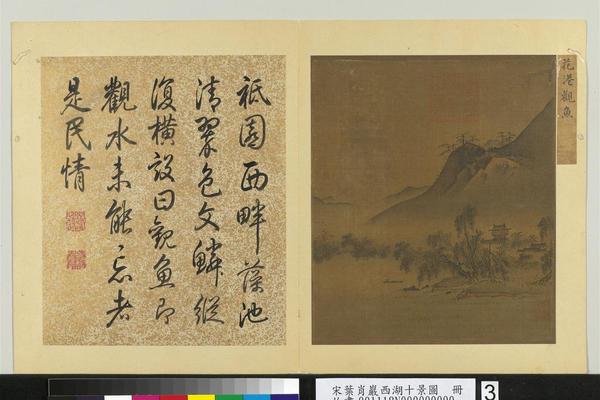 祗園西畔藻池
清翠色文鱗縱
復橫設曰觀魚即
觀水未能忘者
是民情
花港觀魚
宋葉肖巖西湖十景圖 冊
3